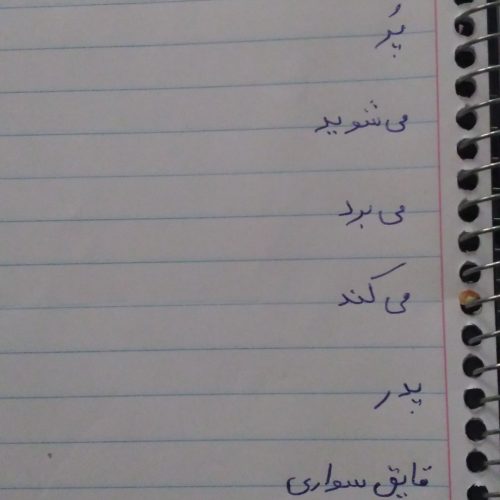 پُر
می شوید
می برد
می کند
پدر
قایق سواری